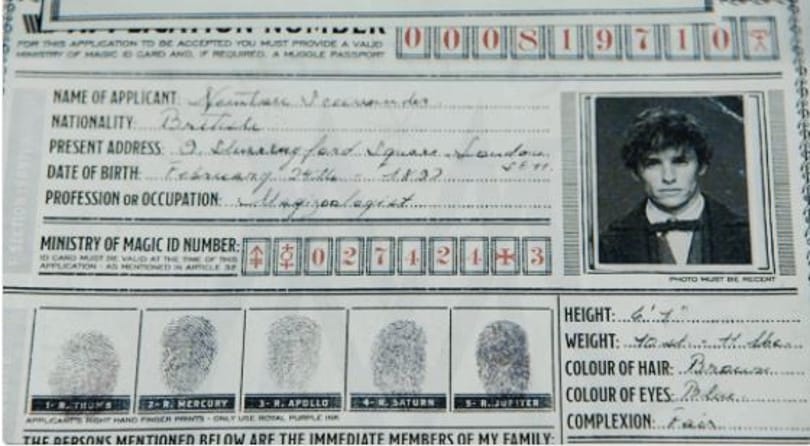 APPLICATION NUMBER
0 0 0 8 1 9 7 1 0
FOR THIS APPLICATION TO BE ACCEPTED YOU MUST PROVIDE A VALID
MINISTRY OF MAGIC ID CARD AND, IF REQUIRED, A MUGGLE PASSPORT
NAME OF APPLICANT: Newton Scamander
NATIONALITY: British
PRESENT ADDRESS: Square London
SE11
DATE OF BIRTH: February 24th
PROFESSION OR OCCUPATION: Magizoologist
MINISTRY OF MAGIC ID NUMBER: 0 2 7 4 2 4 ✠ 3
ID CARD MUST BE VALID AT THE TIME OF THIS
APPLICATION - AS MENTIONED IN ARTICLE 32
PHOTO MUST BE RECENT
1- R. THUMB
2- R. MERCURY
3- R. APOLLO
4- R. SATURN
5- R. JUPITER
APPLICANT'S RIGHT HAND FINGER PRINTS - ONLY USE ROYAL PURPLE INK
HEIGHT: 6'
WEIGHT: 10 st - 11 lbs
COLOUR OF HAIR: Brown
COLOUR OF EYES: Blue
COMPLEXION: Fair
THE PERSONS MENTIONED BELOW ARE THE IMMEDIATE MEMBERS OF MY FAMILY: